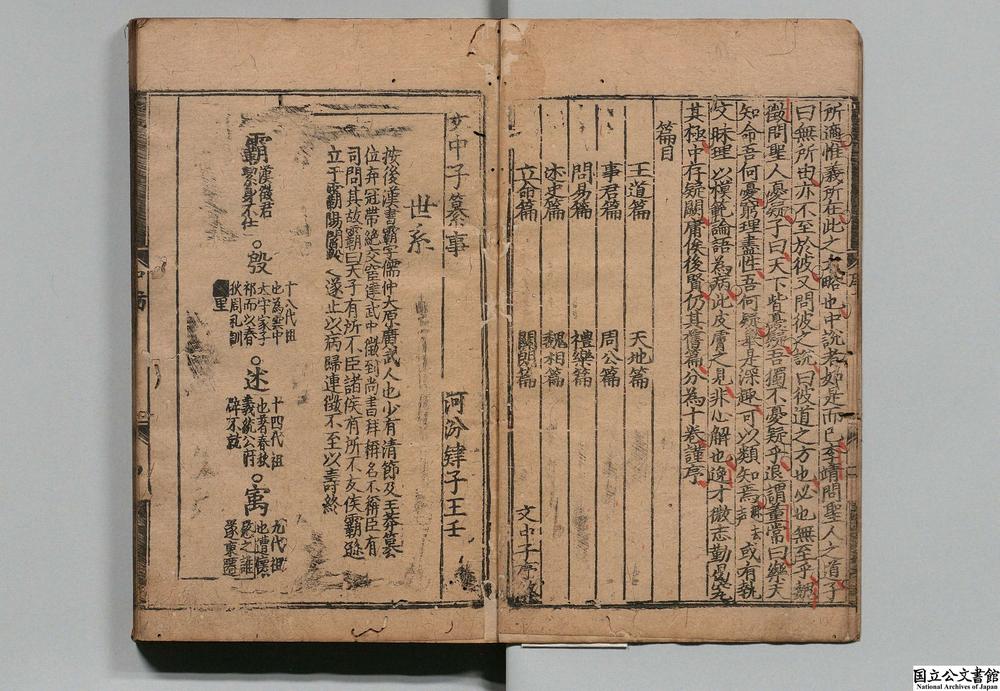 所適惟義所在此之大略也中說者如是而已李靖問聖人之道子
曰無所由亦不至於彼又問彼之說曰彼道之方也必也無至乎魏
徵問聖人憂疑子曰天下皆憂疑吾獨不憂疑乎退謂董常曰樂天
知命吾何憂窮理盡性吾何疑舉是深趣可以類知焉或有執
文昧理以模範論語為病此皮膚之見非心解也逸才微志勤曷究
其極中存疑闕庸俟後賢仍其舊篇分為十卷謹序
篇目
王道篇 天地篇
事君篇 周公篇
問易篇 禮樂篇
述史篇 魏相篇
立命篇 關朗篇
文中子序
文中子纂事
河汾肆子王壬
世系
按後漢書霸字儒仲大原廣武人也少有清節及王莽篡
位弃冠帶絕交宦建武中徵到尚書拜稱名不稱臣有
司問其故霸曰天子有所不臣諸侯有所不友侯霸遜
位于霸陽毀之遂止以病歸連徵不至以壽終
霸 漢徵君
絜身不仕
殷 十八代祖
也為雲中
太守家于
祁而以春
秋周礼訓
里
述 十四代祖
也著春秋
義統公府
辟不就
寓 九代祖
也遭愍
懷之難
遂東遷
国立公文書館
National Archives of Japan